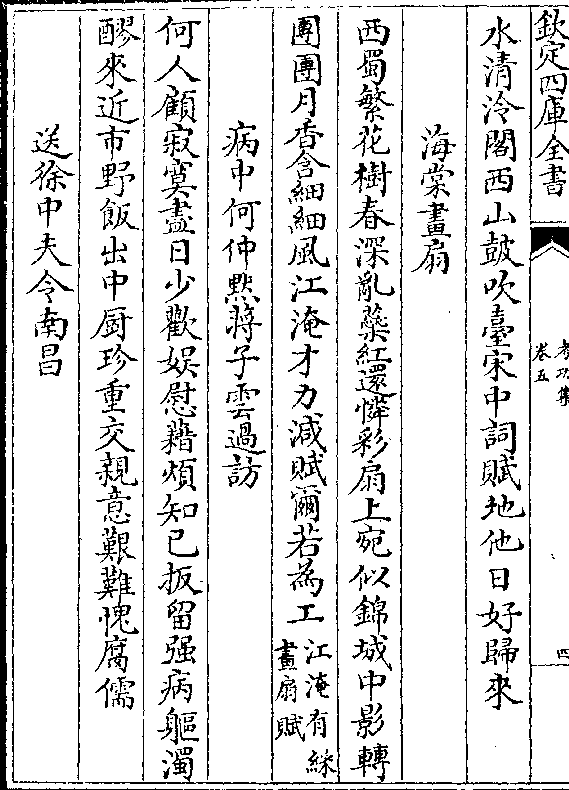 欽定四庫全書
考功集
卷五
四
水清泠閣西山鼓吹臺宋中詞賦地他日好歸來
海棠畫扇
西蜀繁花樹春深亂蘂紅還憐彩扇上宛似錦城中影轉
團團月香含細細風江淹才力減賦爾若為工江淹有綵
畫扇賦
病中何仲黙蔣子雲過訪
何人顧寂寞盡日少歡娛慰藉煩知已扳留强病軀濁
醪來近市野飯出中厨珍重交親意艱難愧腐儒
送徐中夫令南昌